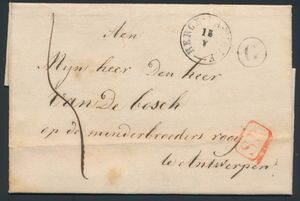 Aen
Mijn heer Den heer
Van De bosch
op de minderbroeders rooy
te Antwerpen
15
V
C
SR